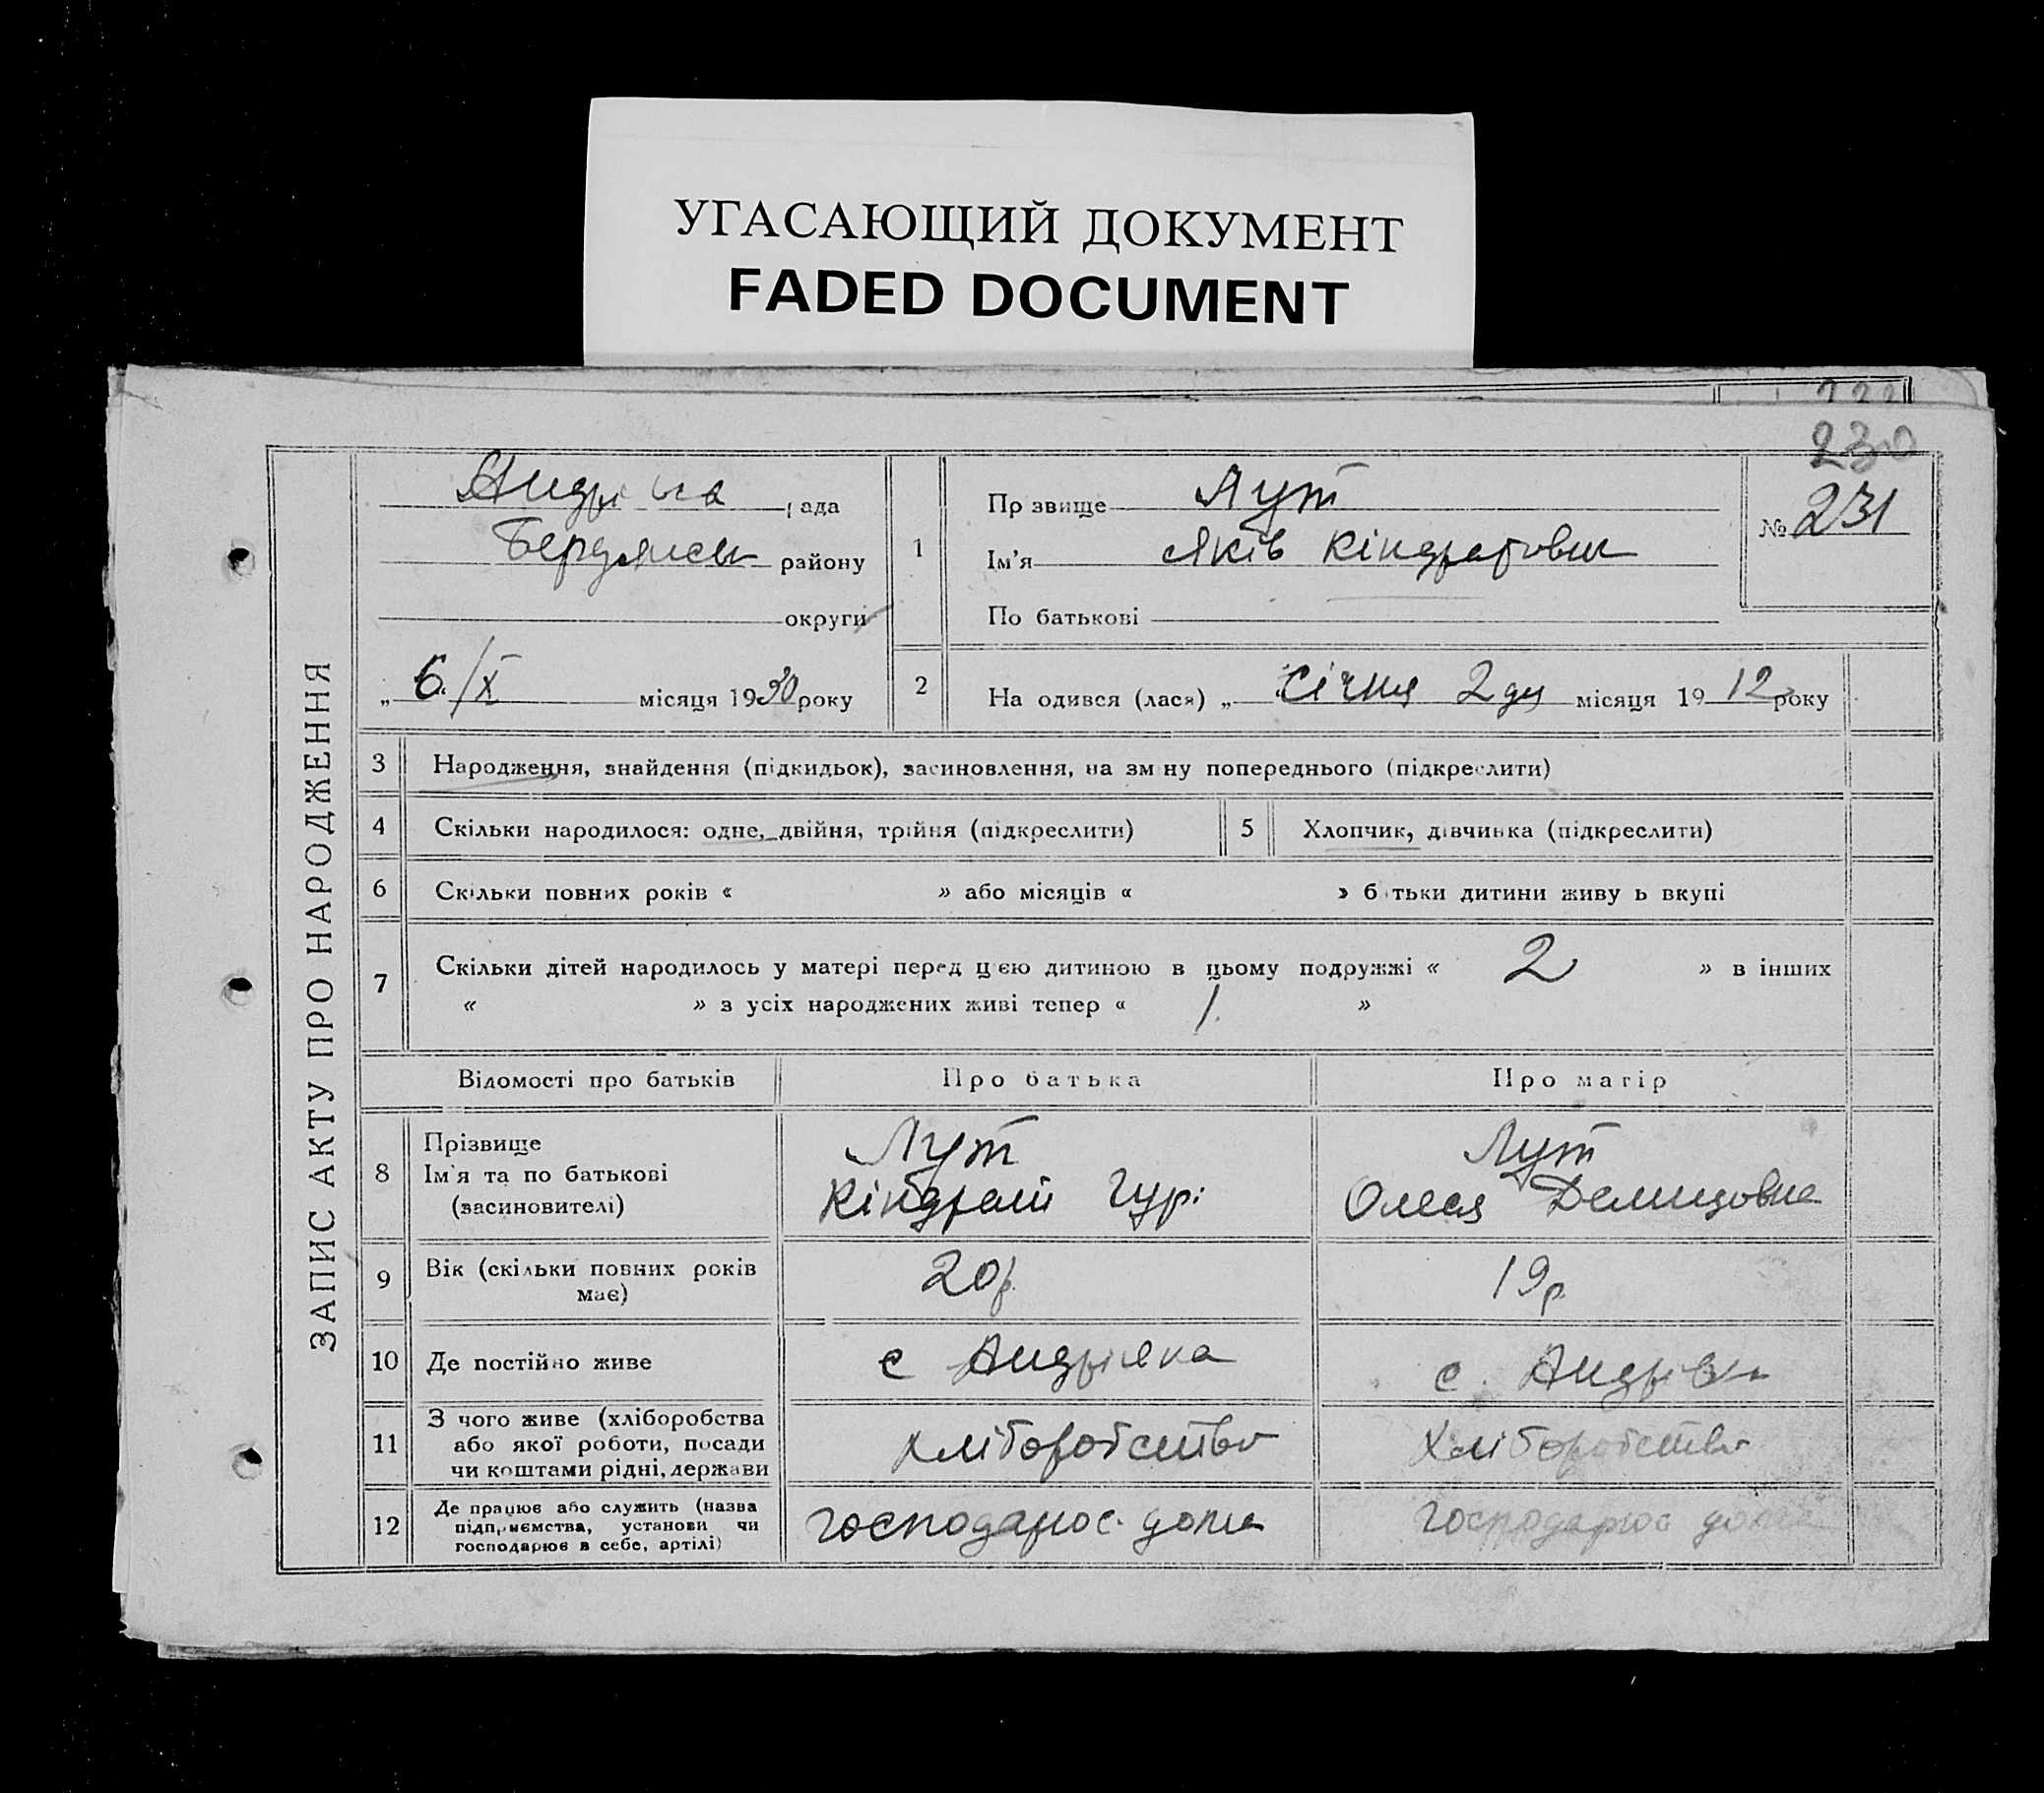 УГАСАЮЩИЙ ДОКУМЕНТ
FADED DOCUMENT
230
ЗАПИС АКТУ ПРО НАРОДЖЕННЯ
рада
Бердянськ району
округи
„ 6/X місяця 1930 року
1
Прзвище Лут
Ім'я Яків Кіндратович
По батькові
№ 231
2
На одився (лася) „ Січня 2 дня місяця 1912 року
3 Народження, знайдення (підкидьок), засиновлення, на зм ну попереднього (підкреслити)
4 Скільки народилося: одне, двійня, трійня (підкреслити)
5 Хлопчик, дівчинка (підкреслити)
6 Скільки повних років « » або місяців « » б тьки дитини живу ь вкупі
7 Скільки дітей народилось у матері перед цією дитиною в цьому подружжі « 2 » в інших
« » з усіх народжених живі тепер « 1 »
Відомості про батьків Про батька Про матір
8 Прізвище
Ім'я та по батькові
(засиновителі)
Лут
Кіндрат Гур.
Лут
Олеся
9 Вік (скільки повних років
має)
20 р.
19 р.
10 Де постійно живе
с Андріївка
с. Андрівка
11 З чого живе (хліборобства
або якої роботи, посади
чи коштами рідні, держави
хліборобство
хліборобство
12 Де працює або служить (назва
підприємства, установи чи
господарює в себе, артілі)
господарює дома
господарює дома